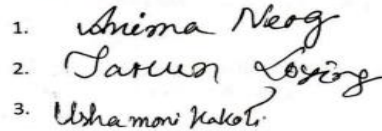 1. Anima Neog
2. Tarun Loying
3. Ushamoni Kakoti